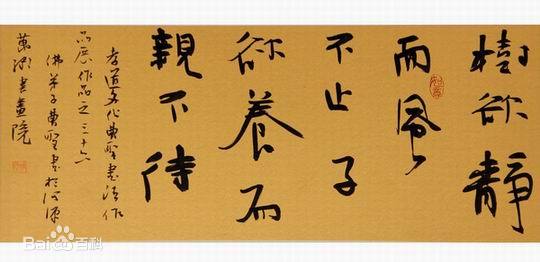 樹欲靜
而風
不止子
欲養而
親不待
孝道文化聖書法作
品展作品之三十六
佛弟子聖書於河源
萬湖書畫院
Bai du 百科